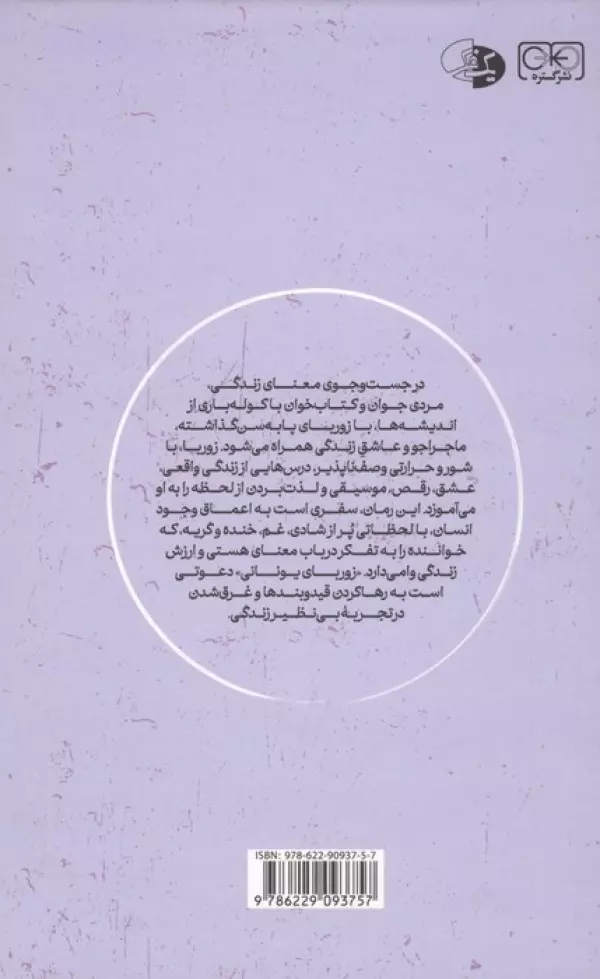 نشر گستره
در جست‌وجوی معنای زندگی،
مردی جوان و کتاب‌خوان با کوله‌باری از
اندیشه‌ها، با زوربای پا‌به‌سن‌گذاشته،
ماجراجو و عاشقِ زندگی همراه می‌شود. زوربا، با
شور و حرارتی وصف‌ناپذیر، درس‌هایی از زندگی واقعی،
عشق، رقص، موسیقی و لذت‌بردن از لحظه را به او
می‌آموزد. این رمان، سفری است به اعماق وجود
انسان، با لحظاتی پُر از شادی، غم، خنده و گریه، که
خواننده را به تفکر در باب معنای هستی و ارزش
زندگی وامی‌دارد. «زوربای یونانی» دعوتی
است به رهاکردن قیدوبندها و غرق‌شدن
در تجربهٔ بی‌نظیر زندگی.
ISBN: 978-622-90937-5-7
9 786229 093757